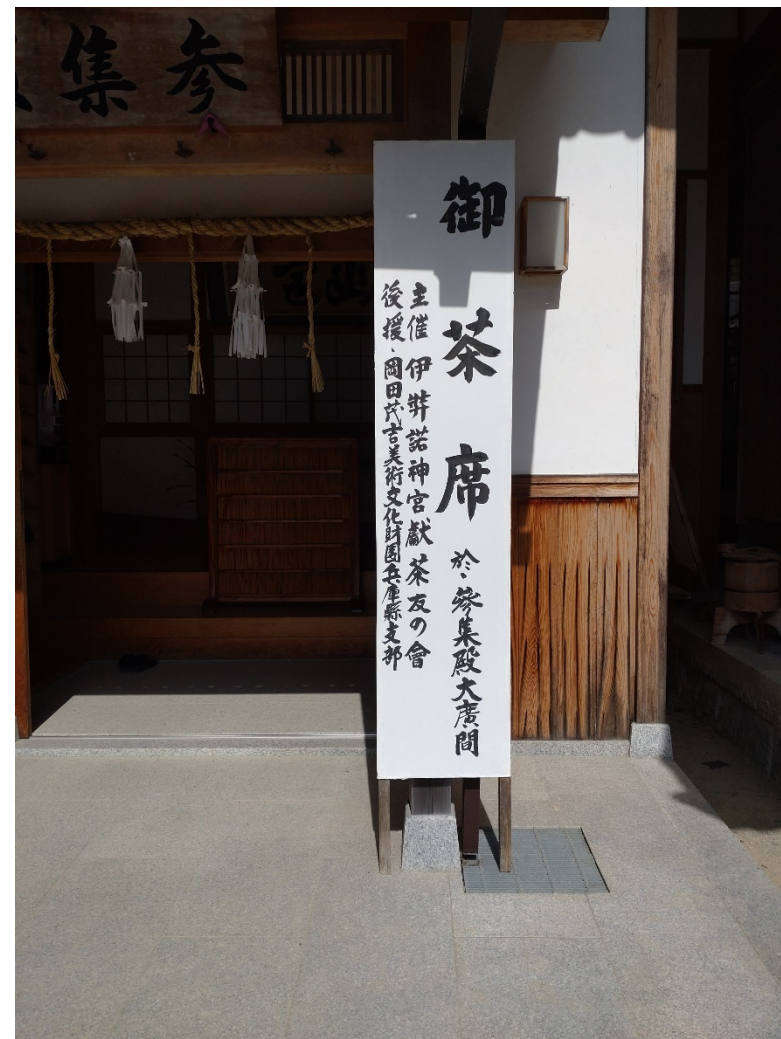 参集
御茶席 於、參集殿大廣間
主催 伊弉諾神宮獻茶友の會
後援、岡田茂吉美術文化財団兵庫縣支部